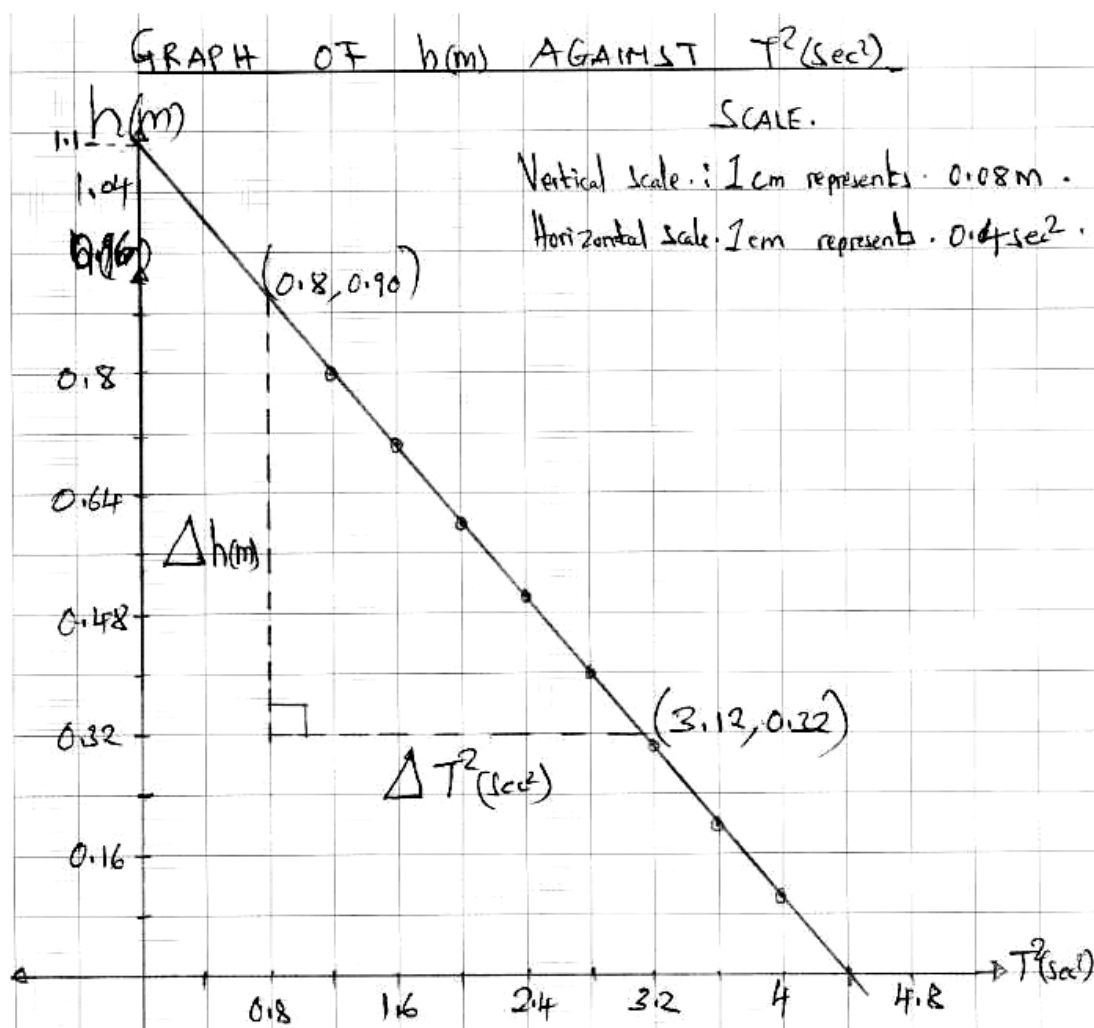 GRAPH OF h(m) AGAINST T²(Sec²)
h(m)
SCALE.
Vertical Scale.: 1cm represents. 0.08m.
Horizontal Scale. 1cm represents. 0.4sec².
1.1
1.04
0.96
(0.8, 0.90)
0.8
0.64
Δh(m)
0.48
0.32
(3.12, 0.32)
ΔT²(sec²)
0.16
T²(sec²)
0.8 1.6 2.4 3.2 4 4.8